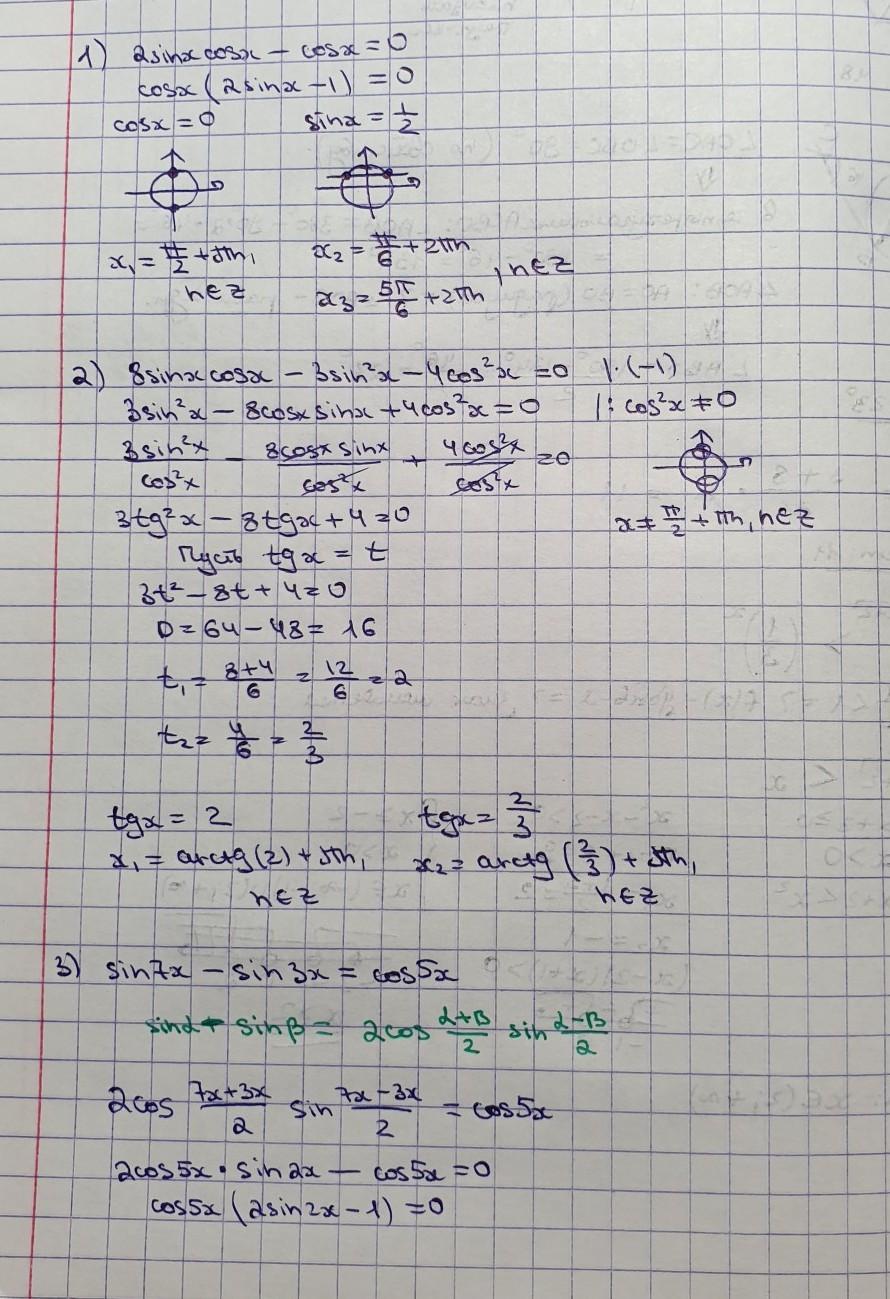 1) 2sinxcosx − cosx = 0
cosx (2sinx − 1) = 0
cosx = 0 sinx = 1/2
x₁ = π/2 + πn, n∈Z x₂ = π/6 + 2πn
x₃ = 5π/6 + 2πn , n∈Z
2) 8sinxcosx − 3sin²x − 4cos²x = 0 |·(−1)
3sin²x − 8cosxsinx + 4cos²x = 0 |: cos²x ≠ 0
3sin²x/cos²x − 8cosxsinx/cos²x + 4cos²x/cos²x = 0
3tg²x − 8tgx + 4 = 0 x ≠ π/2 + πn, n∈Z
Пусть tgx = t
3t² − 8t + 4 = 0
D = 64 − 48 = 16
t₁ = 8+4/6 = 12/6 = 2
t₂ = 4/6 = 2/3
tgx = 2 tgx = 2/3
x₁ = arctg(2) + πn, x₂ = arctg(2/3) + πn,
n∈Z n∈Z
3) sin7x − sin3x = cos5x
sinα − sinβ = 2cos α+β/2 sin α−β/2
2cos 7x+3x/2 sin 7x−3x/2 = cos5x
2cos5x · sin2x − cos5x = 0
cos5x (2sin2x − 1) = 0